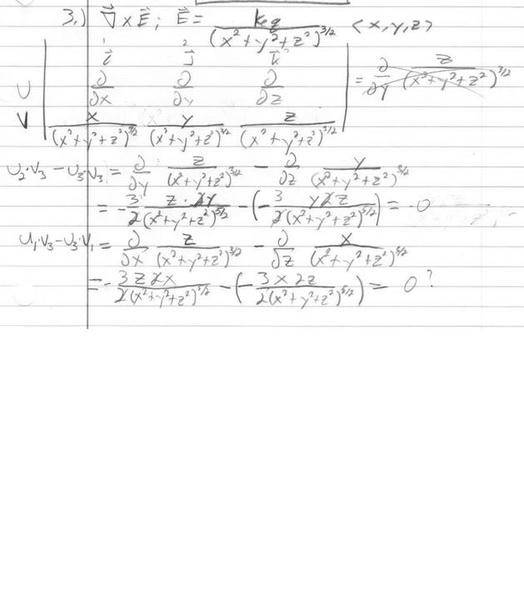 3.) ∇⃗ x E⃗ ; E⃗ = keq / (x²+y²+z²)^3/2 <x, y, z>
1 2 3
i⃗ j⃗ k⃗
U ∂/∂x ∂/∂y ∂/∂z = ∂/∂y z/(x²+y²+z²)^3/2
V x/(x²+y²+z²)^3/2 y/(x²+y²+z²)^3/2 z/(x²+y²+z²)^3/2
U₂·V₃ - U₃·V₃ = ∂/∂y z/(x²+y²+z²)^3/2 - ∂/∂z y/(x²+y²+z²)^3/2
= -3/2 z·2y/(x²+y²+z²)^5/2 - (-3 y2z/2(x²+y²+z²)^5/2) = 0
U₁·V₃ - U₃·V₁ = ∂/∂x z/(x²+y²+z²)^3/2 - ∂/∂z x/(x²+y²+z²)^3/2
= -3z2x/2(x²+y²+z²)^5/2 - (-3x2z/2(x²+y²+z²)^5/2) = 0?